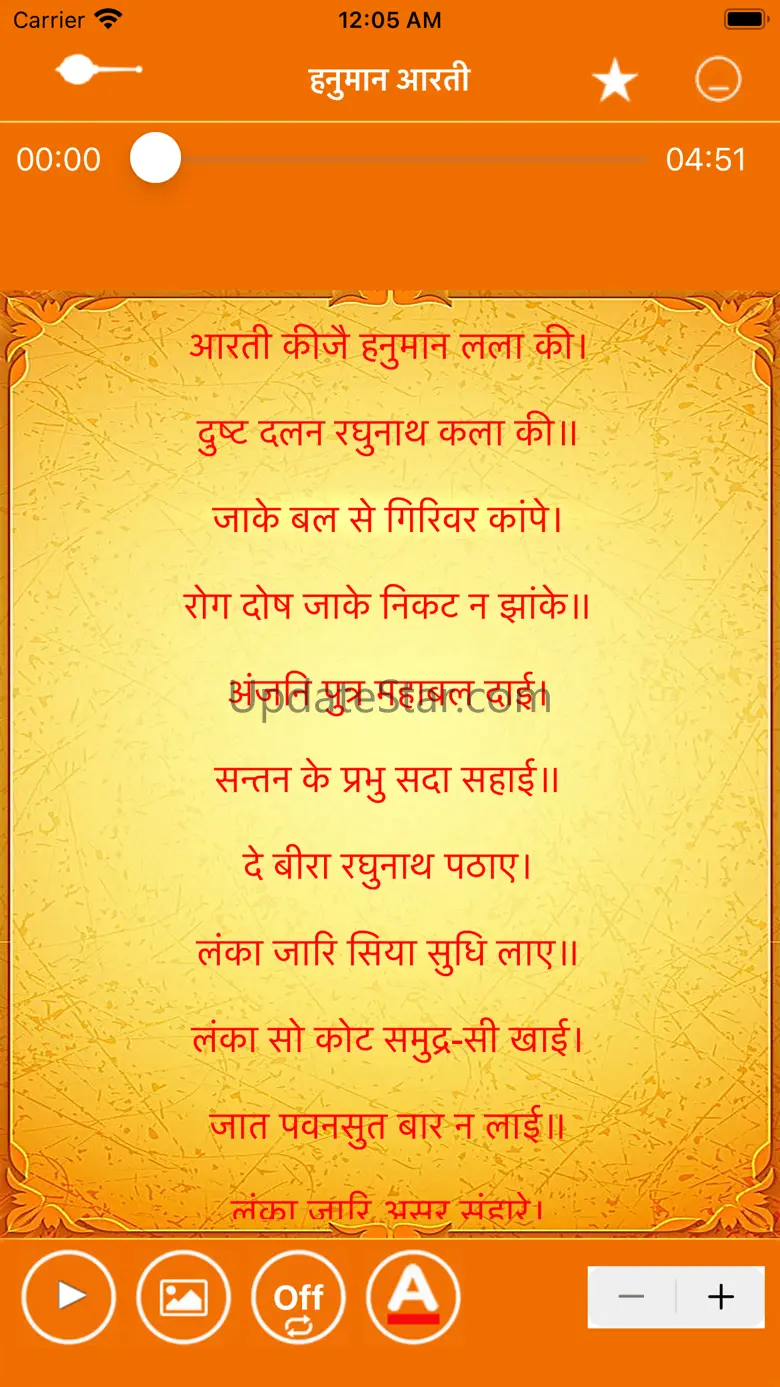 Carrier 12:05 AM
हनुमान आरती
00:00 04:51
आरती कीजै हनुमान लला की।
दुष्ट दलन रघुनाथ कला की॥
जाके बल से गिरिवर कांपे।
रोग दोष जाके निकट न झांके॥
अंजनि पुत्र महाबल दाई।
UpdateStar.com
सन्तन के प्रभु सदा सहाई॥
दे बीरा रघुनाथ पठाए।
लंका जारि सिया सुधि लाए॥
लंका सो कोट समुद्र-सी खाई।
जात पवनसुत बार न लाई॥
लंका जारि असुर संहारे।
Off A − +